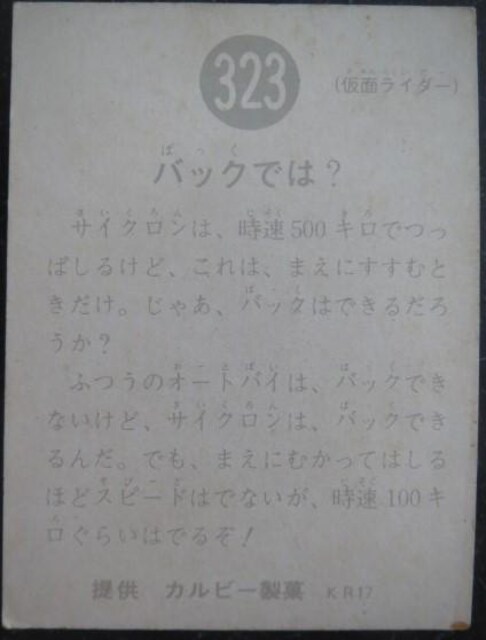 323
(仮面ライダー)
バックでは?
サイクロンは、時速500キロでつっ
ぱしるけど、これは、まえにすすむと
きだけ。じゃあ、バックはできるだろ
うか?
ふつうのオートバイは、バックでき
ないけど、サイクロンは、バックでき
るんだ。でも、まえにむかってはしる
ほどスピードはでないが、時速100キ
ロぐらいはでるぞ!
提供 カルビー製菓 KR17